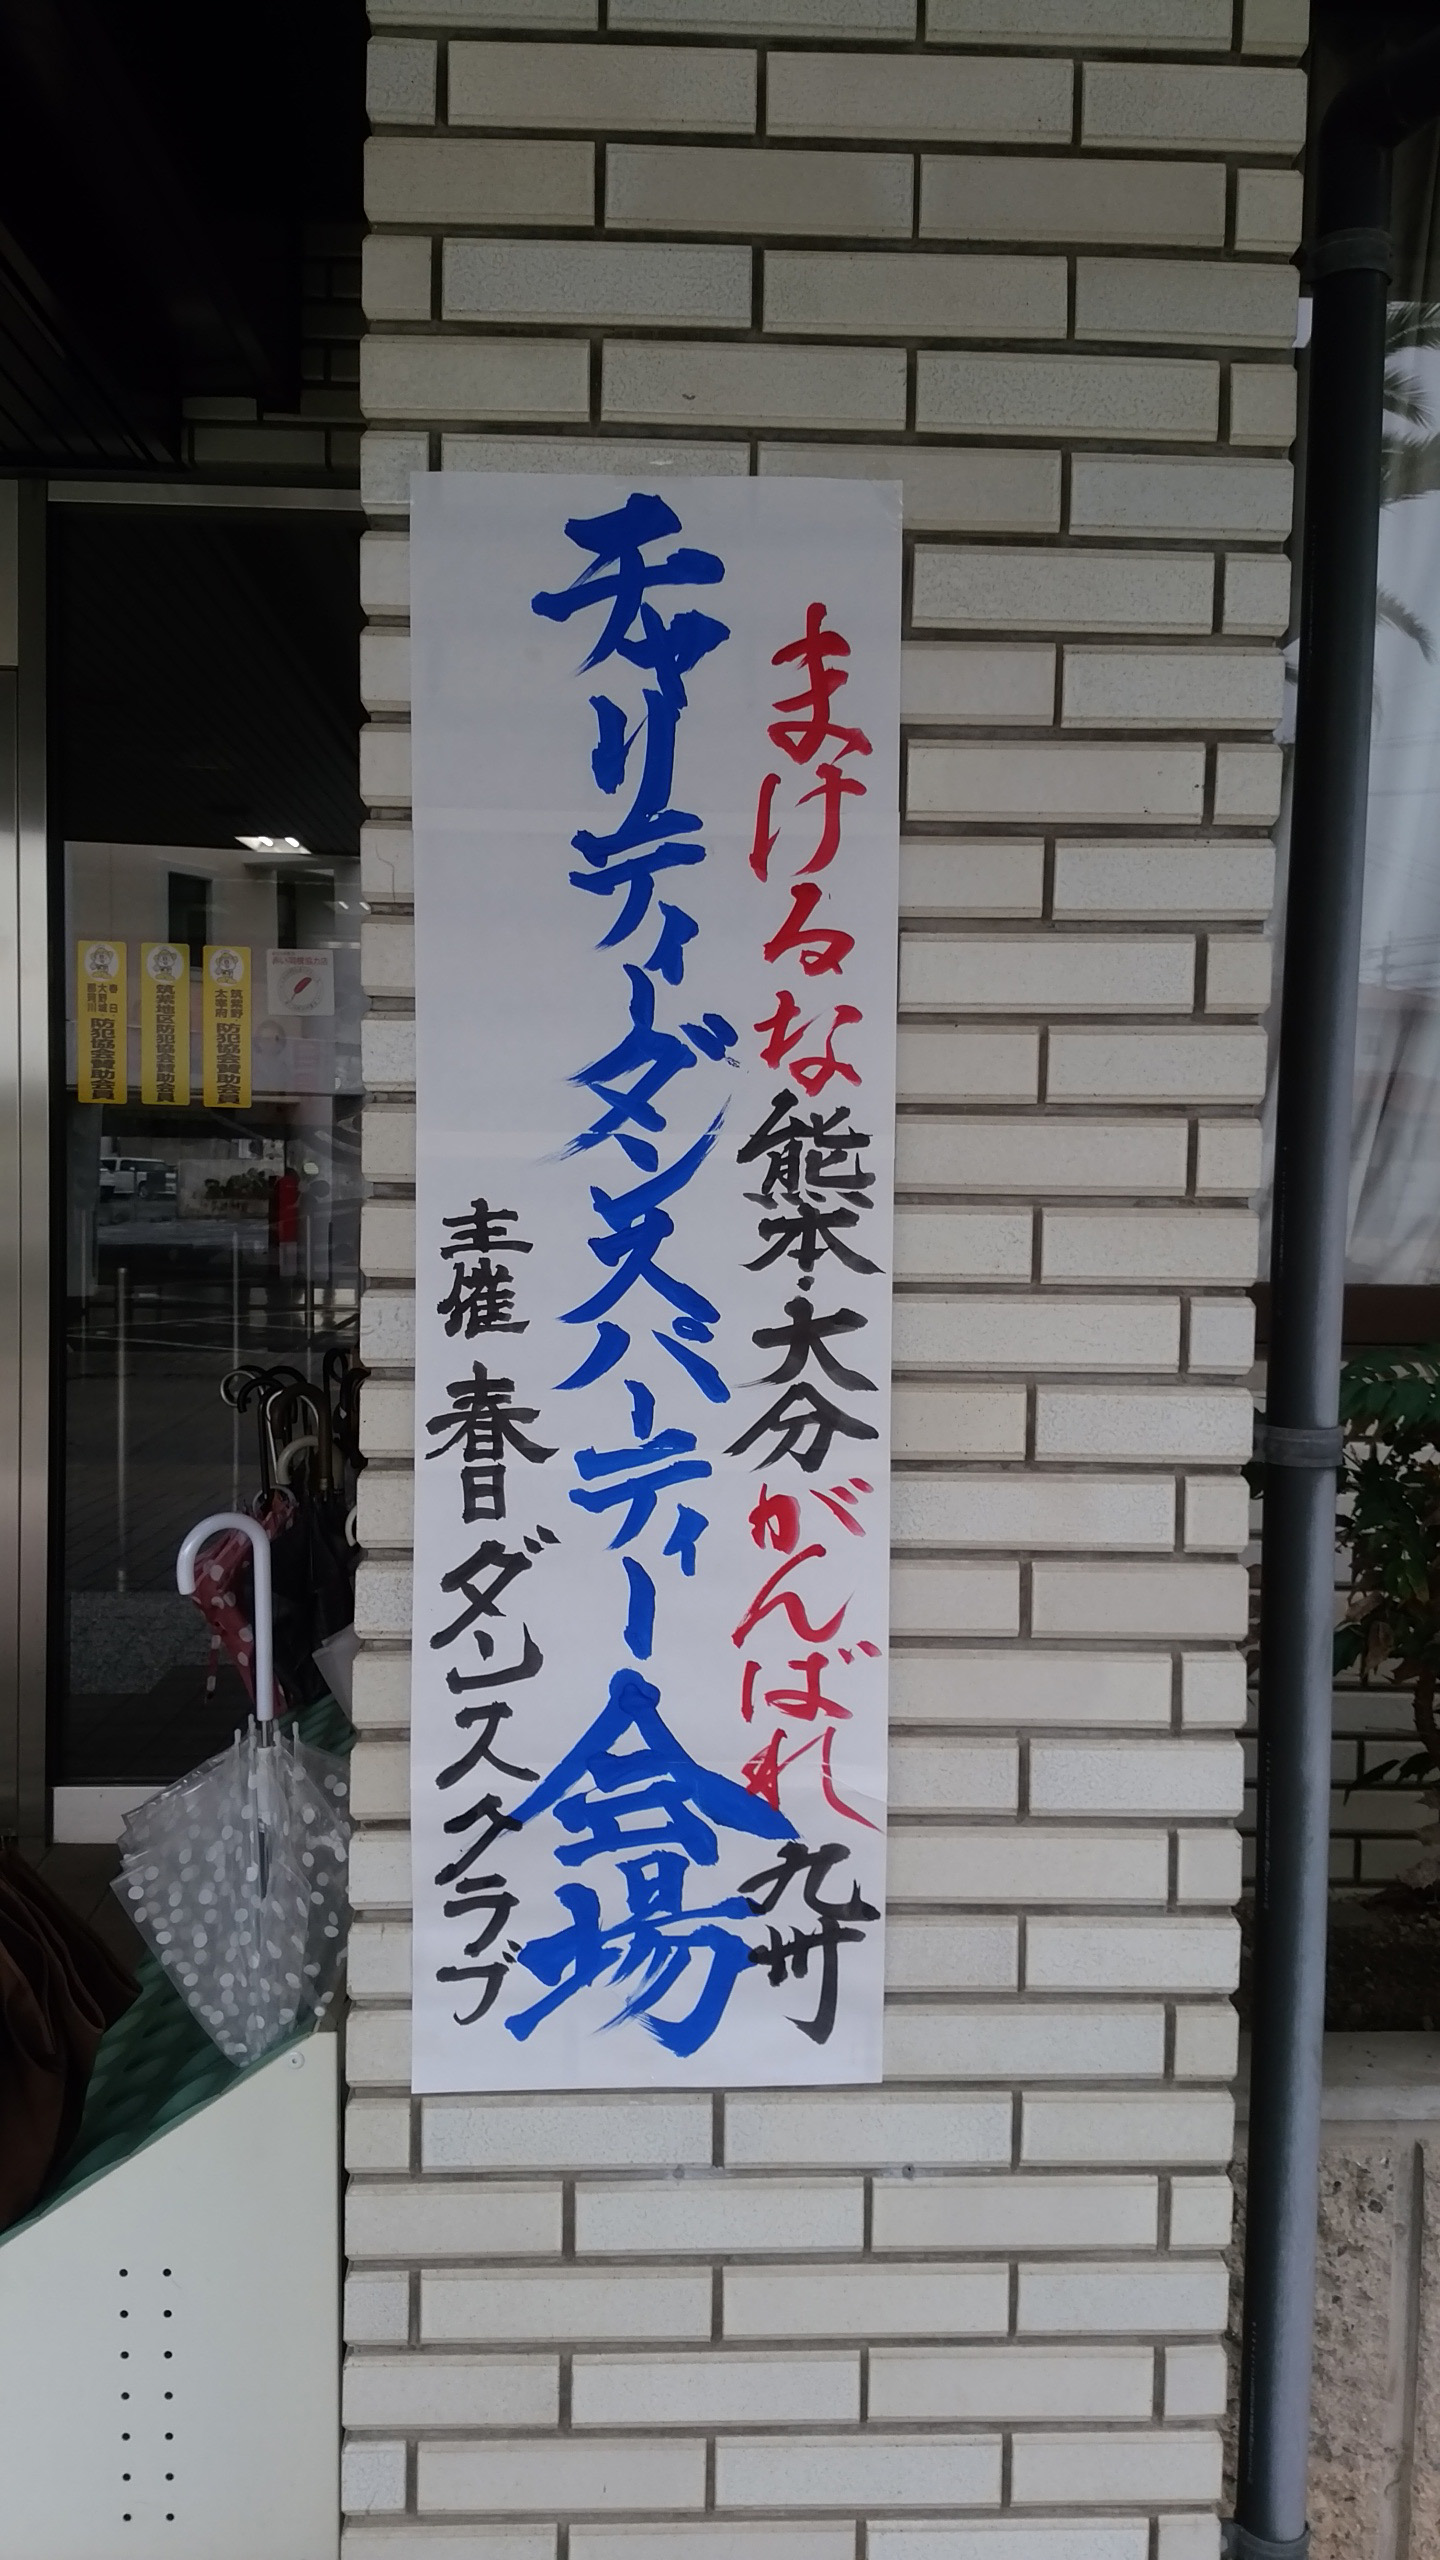 まけるな熊本・大分がんばれ九州
チャリティーダンスパーティー会場
主催 春日ダンスクラブ
筑紫野 太宰府 防犯協会賛助会員
筑紫地区防犯協会賛助会員
春日 大野城 那珂川 防犯協会賛助会員